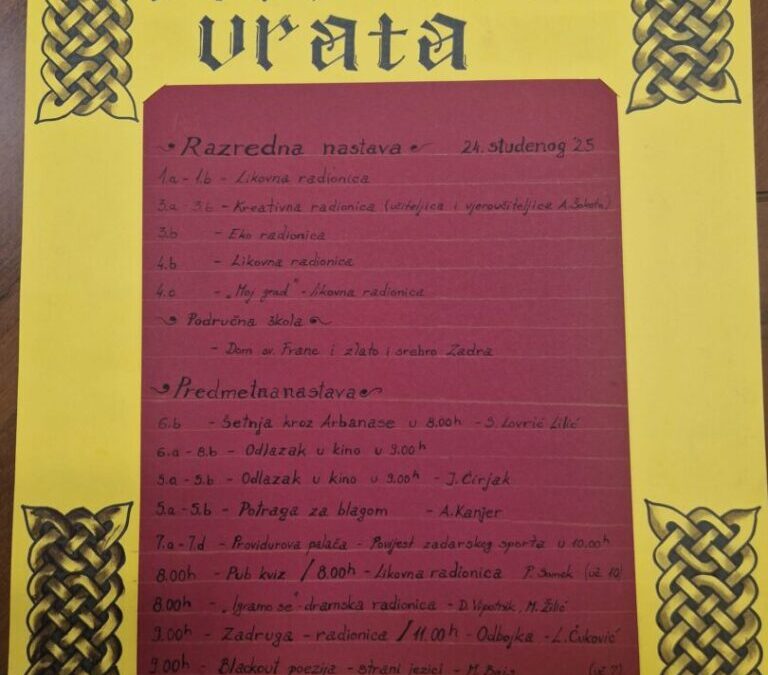 vrata
Razredna nastava 24. studenog 25
1.a - 1.b - Likovna radionica
3.a - 3.b - Kreativna radionica (učiteljica i vjeroučiteljica A. Šokota)
3.b - Eko radionica
4.b - Likovna radionica
4.c - „Moj grad" - likovna radionica
Područna škola
- Dom sv. Frane i zlato i srebro Zadra
Predmetna nastava
6.b - Šetnja kroz Arbanase u 8.00h - S. Lovrić Lilić
6.a - 8.b - Odlazak u kino u 9.00h
5.a - 5.b - Odlazak u kino u 9.00h - J. Ćirjak
5.a - 5.b - Potraga za blagom - A. Kanjer
7.a - 7.d - Providurova palača - Povijest zadarskog sporta u 10.00h
8.00h - Pub kviz / 8.00h - Likovna radionica P. (uč. 10)
8.00h - „Igramo se" - dramska radionica - D. Vipotnik, M. Žilić
9.00h - Zadruga - radionica / 11.00h - Odbojka - L. Čuković
9.00h - Blackout poezija - strani jezici - M.